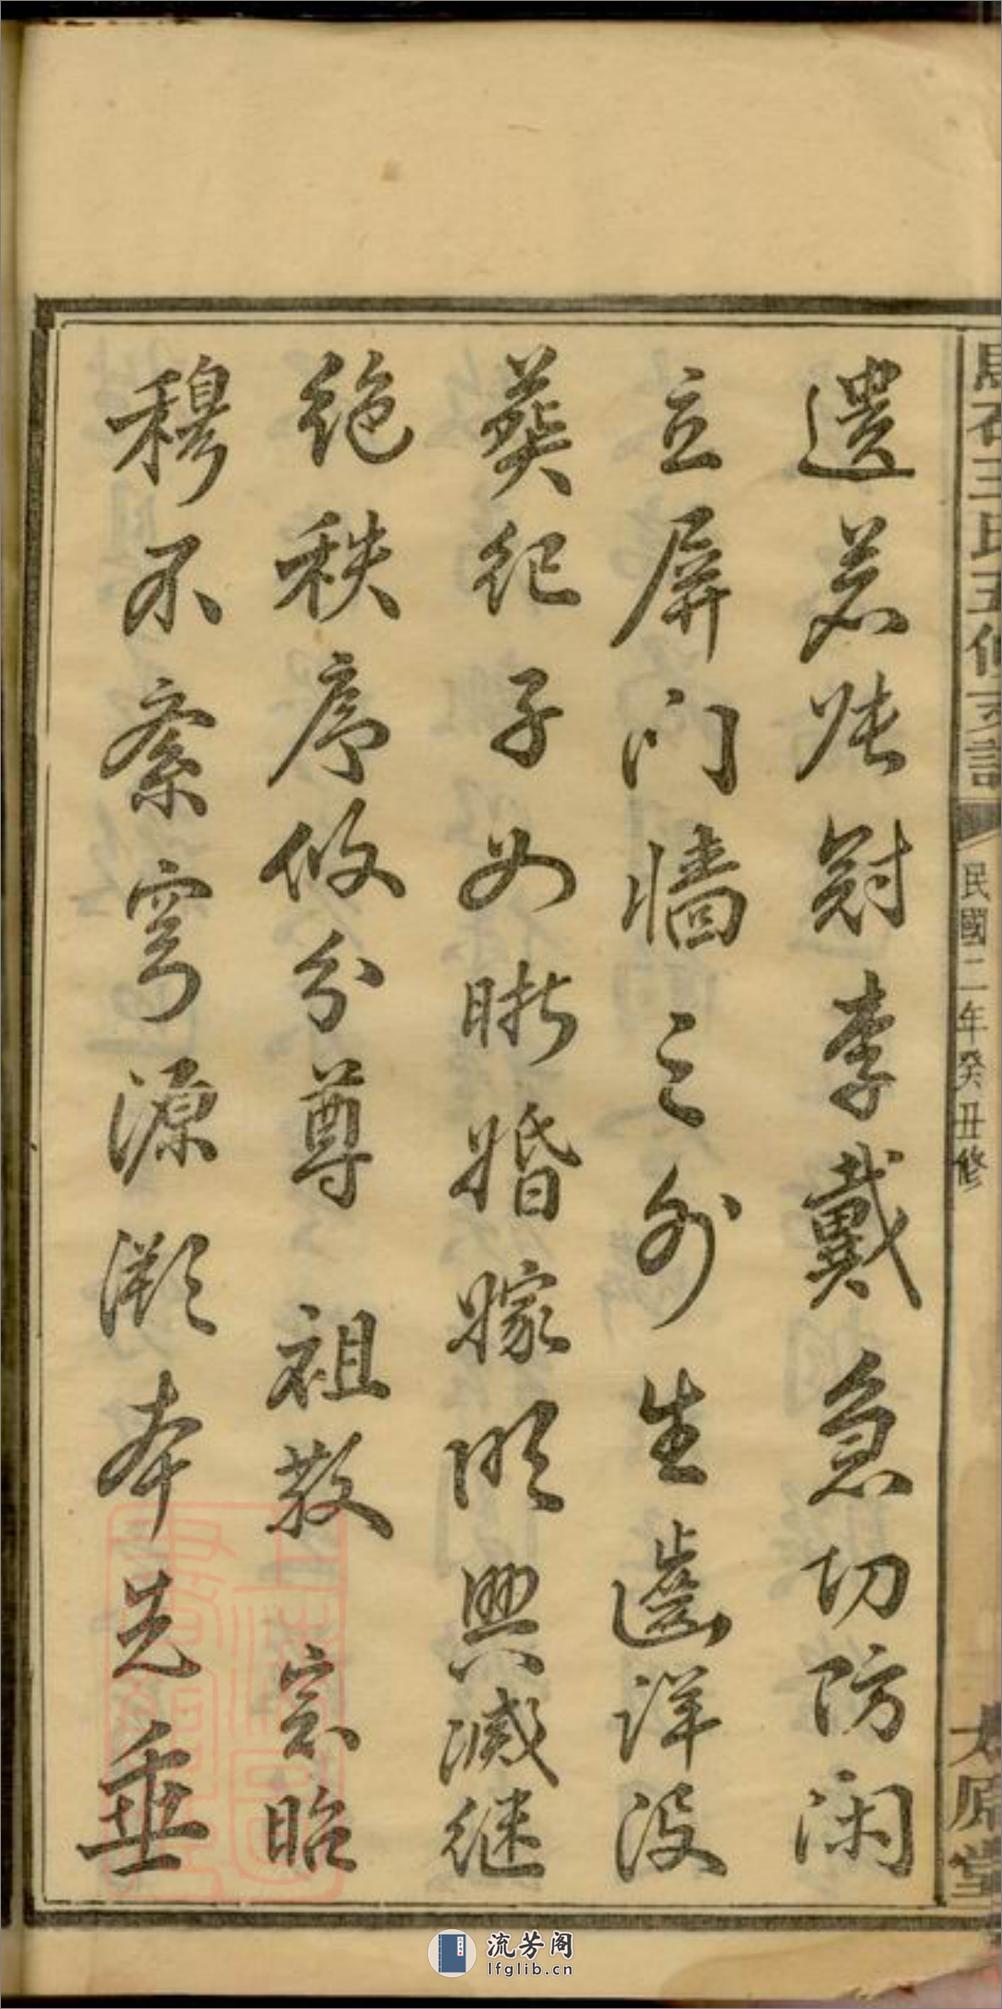 馬石王氏五修支譜
民國二年癸丑修
太原堂
遺若张冠李戴急切防闲
立屏门墙之外生齒详没
葬纪子女晰婚嫁明興滅继
绝秩序攸分尊 祖敬 宗昭
穆不紊穷源溯本先垂
流芳阁
lfglib.cn